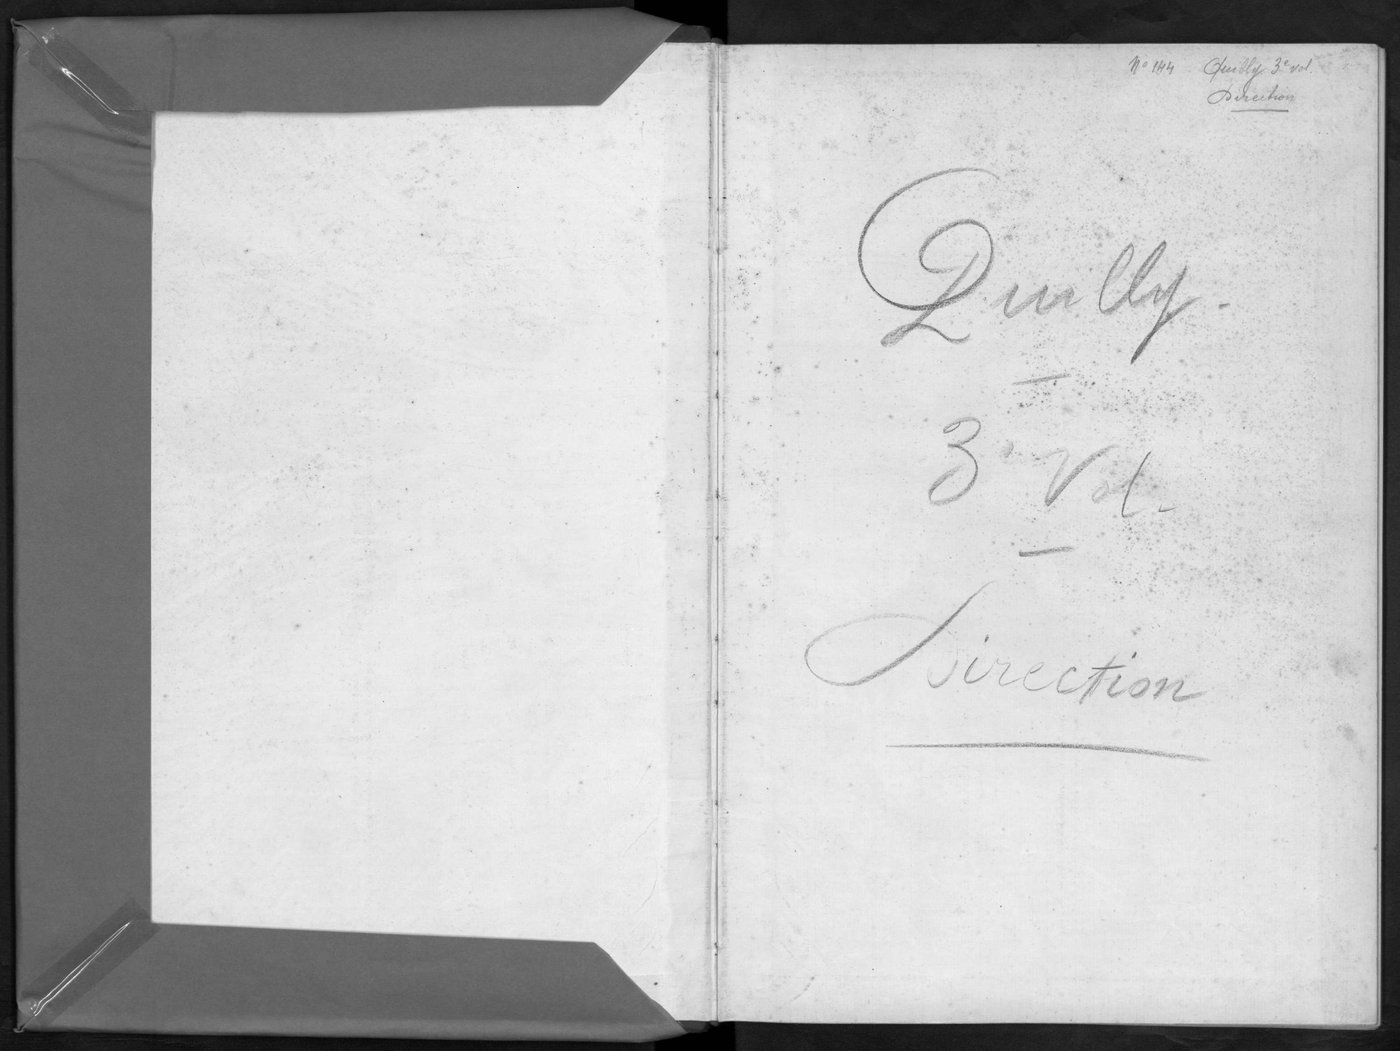 N° 144 Quilly 3e vol.
Direction
Quilly.
3e Vol.
Direction